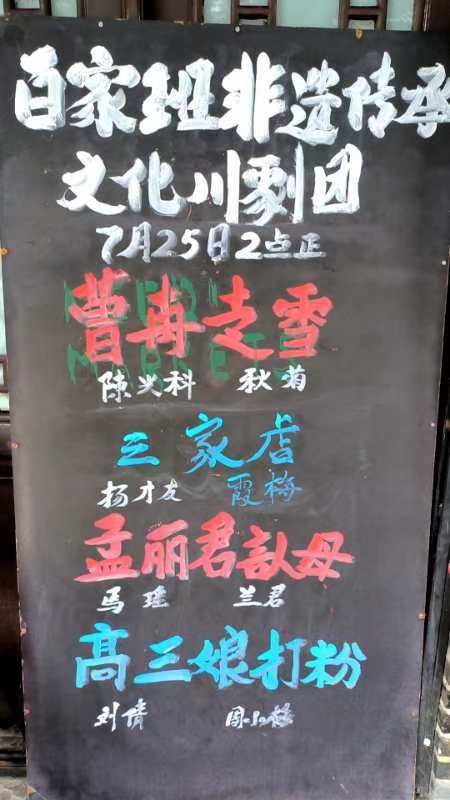 百家班非遗传承
文化川剧团
7月25日2点正
曹甫走雪
陳兴科 秋菊
三家店
杨才友 霞梅
孟丽君認母
马瑶 兰君
高三娘打粉
刘倩